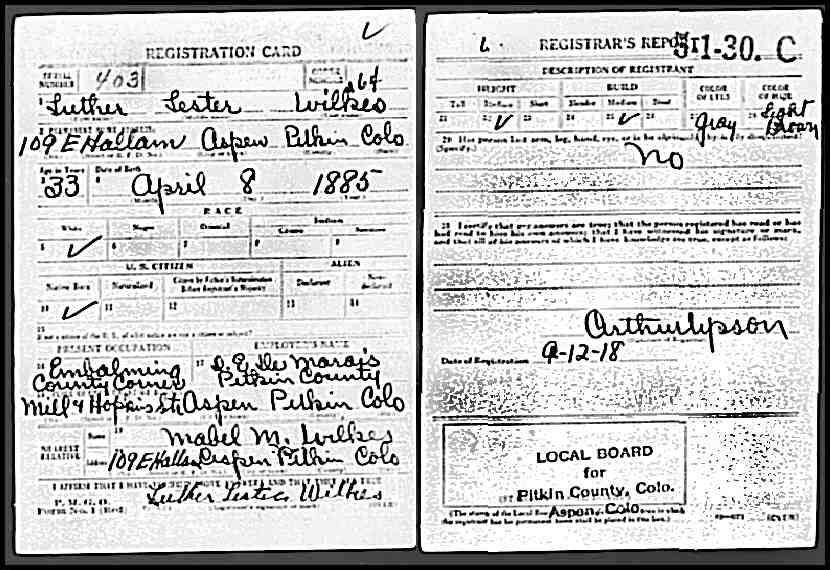 REGISTRATION CARD
SERIAL NUMBER 403 ORDER NUMBER
1 Luther Lester Wilkes
2 PERMANENT HOME ADDRESS:
109 E Hallam Aspen Pitkin Colo
Age in Years Date of Birth
33 April 8 1885
RACE
White Negro Oriental Indian
Citizen Noncitizen
5 ✓ 6 7 8 9
U. S. CITIZEN ALIEN
Native Born Naturalized Citizen by Father's Naturalization Before Registrant's Majority Declarant Non-declarant
10 ✓ 11 12 13 14
15
If not a citizen of the U. S., of what nation are you a citizen or subject?
PRESENT OCCUPATION EMPLOYER'S NAME
16 Embalming 17
County Corner Pitkin County
Mill & Hopkins Sts Aspen Pitkin Colo
NEAREST RELATIVE
Name 19 Mabel M. Wilkes
Address 109 E Hallam Aspen Pitkin Colo
I AFFIRM THAT I HAVE
P. M. G. O.
Form No. 1 (Red) Luther Lester Wilkes
(OVER)
REGISTRAR'S REPORT
51-30. C
DESCRIPTION OF REGISTRANT
HEIGHT BUILD COLOR OF EYES COLOR OF HAIR
Tall Medium Short Slender Medium Stout
21 22 ✓ 23 24 25 ✓ 26 27 Gray 28 Light Brown
29 Has person lost arm, leg, hand, eye, or is he obviously physically disqualified?
(Specify.)
No
30 I certify that my answers are true; that the person registered has read or has
had read to him his own answers; that I have witnessed his signature or mark,
and that all of his answers of which I have knowledge are true, except as follows:
Arthur Upson
Date of Registration 9-12-18
LOCAL BOARD
for
Pitkin County, Colo.
Aspen, Colo.
(The stamp of the Local Board area in which
the registrant has his permanent home shall be placed in this box.)
(OVER)